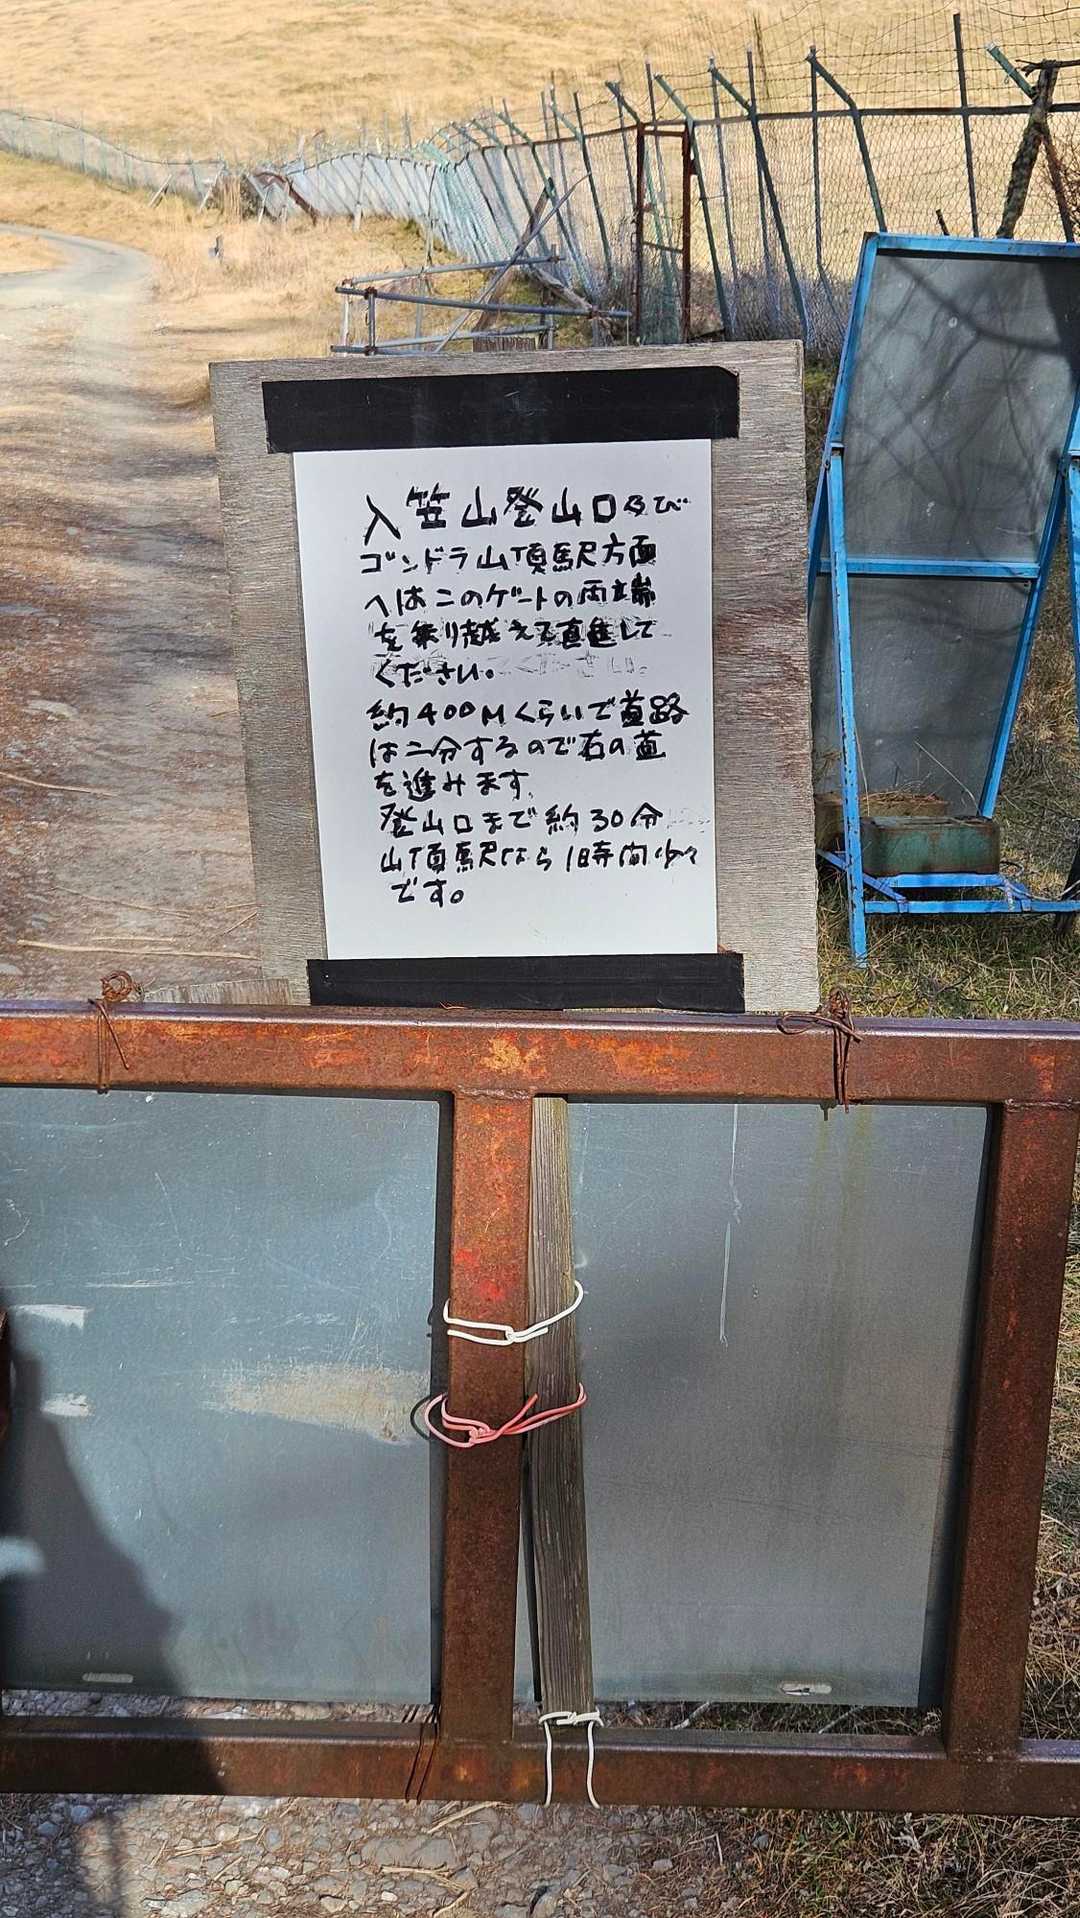 入笠山登山口及び
ゴンドラ山頂駅方面
へはこのゲートの両端
を乗り越えて直進して
ください。
約400Mくらいで道路
は二分するので右の道
を進みます。
登山口まで約30分
山頂駅なら1時間少々
です。